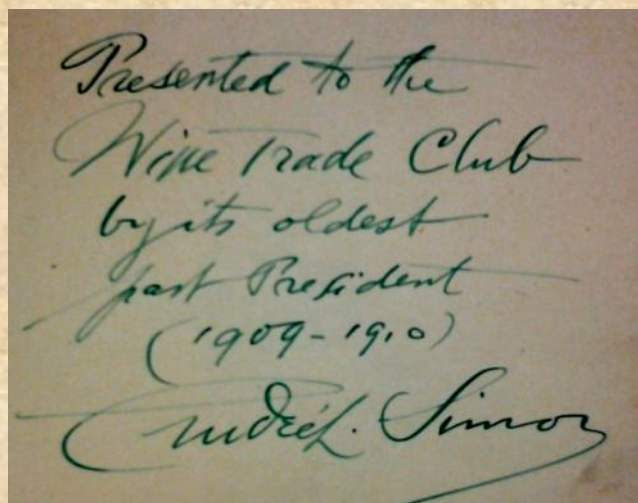 Presented to the
Wine Trade Club
by its oldest
past President
(1909-1910)
André L. Simon